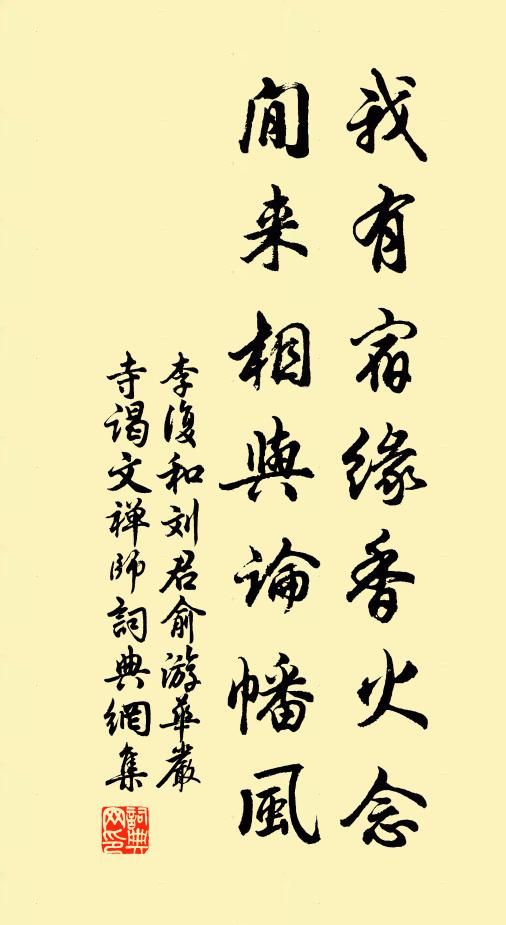 我有宿缘香火念
间来相与論幡風
李復和刘君俞游華嚴
寺谒文禅師詞典網集
詞典網印